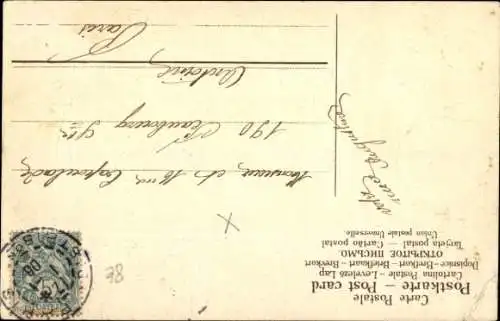 Carte Postale
Postkarte – Post card
Cartolina Postale – Levelező Lap
Dopisnice – Brefkort – Briefkaart – Brevkort
ОТКРЫТОЕ ПИСЬМО.
Tarjeta postal – Cartão postal
Union postale Universelle.
Monsieur et Mme
190 Faubourg St
Antoine
Paris
78